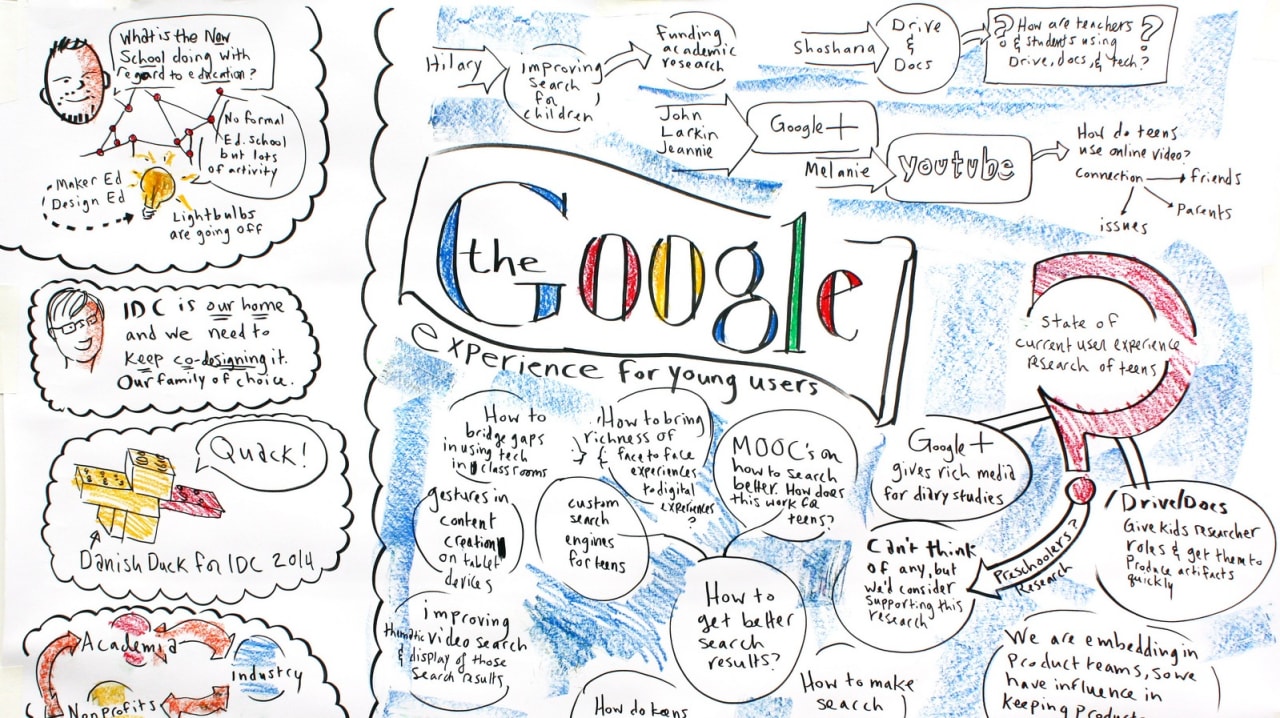 What is the New
School doing with
regard to education?
No formal
Ed. School
but lots
of activity
Maker Ed
Design Ed
Lightbulbs
are going off
IDC is our home
and we need to
keep co-designing it.
Our family of choice.
Quack!
Danish Duck for IDC 2014
Academia
Industry
Nonprofits
Hilary
improving
search
for
children
funding
academic
research
Shoshana
Drive
&
Docs
? How are teachers ?
& students using
Drive, docs, & tech?
John
Larkin
Jeannie
Google+
Melanie
youtube
How do teens
use online video?
connection
friends
parents
issues
the Google
experience for young users
State of
current user experience
research of teens
How to
bridge gaps
in using tech
in classrooms
How to bring
richness of
face to face
experiences
to digital
experiences
?
MOOC's on
how to search
better. How does
this work for
teens?
Google+
gives rich media
for diary studies
Drive/Docs
Give kids researcher
roles & get them to
Produce artifacts
quickly
gestures in
content
creation
on tablet
devices
custom
search
engines
for teens
Can't think
of any, but
we'd consider
supporting this
research
Preschoolers?
Research
improving
thematic video search
& display of those
search results
How to
get better
search
results?
How do teens
How to make
search
We are embedding in
Product teams, so we
have influence in
keeping product